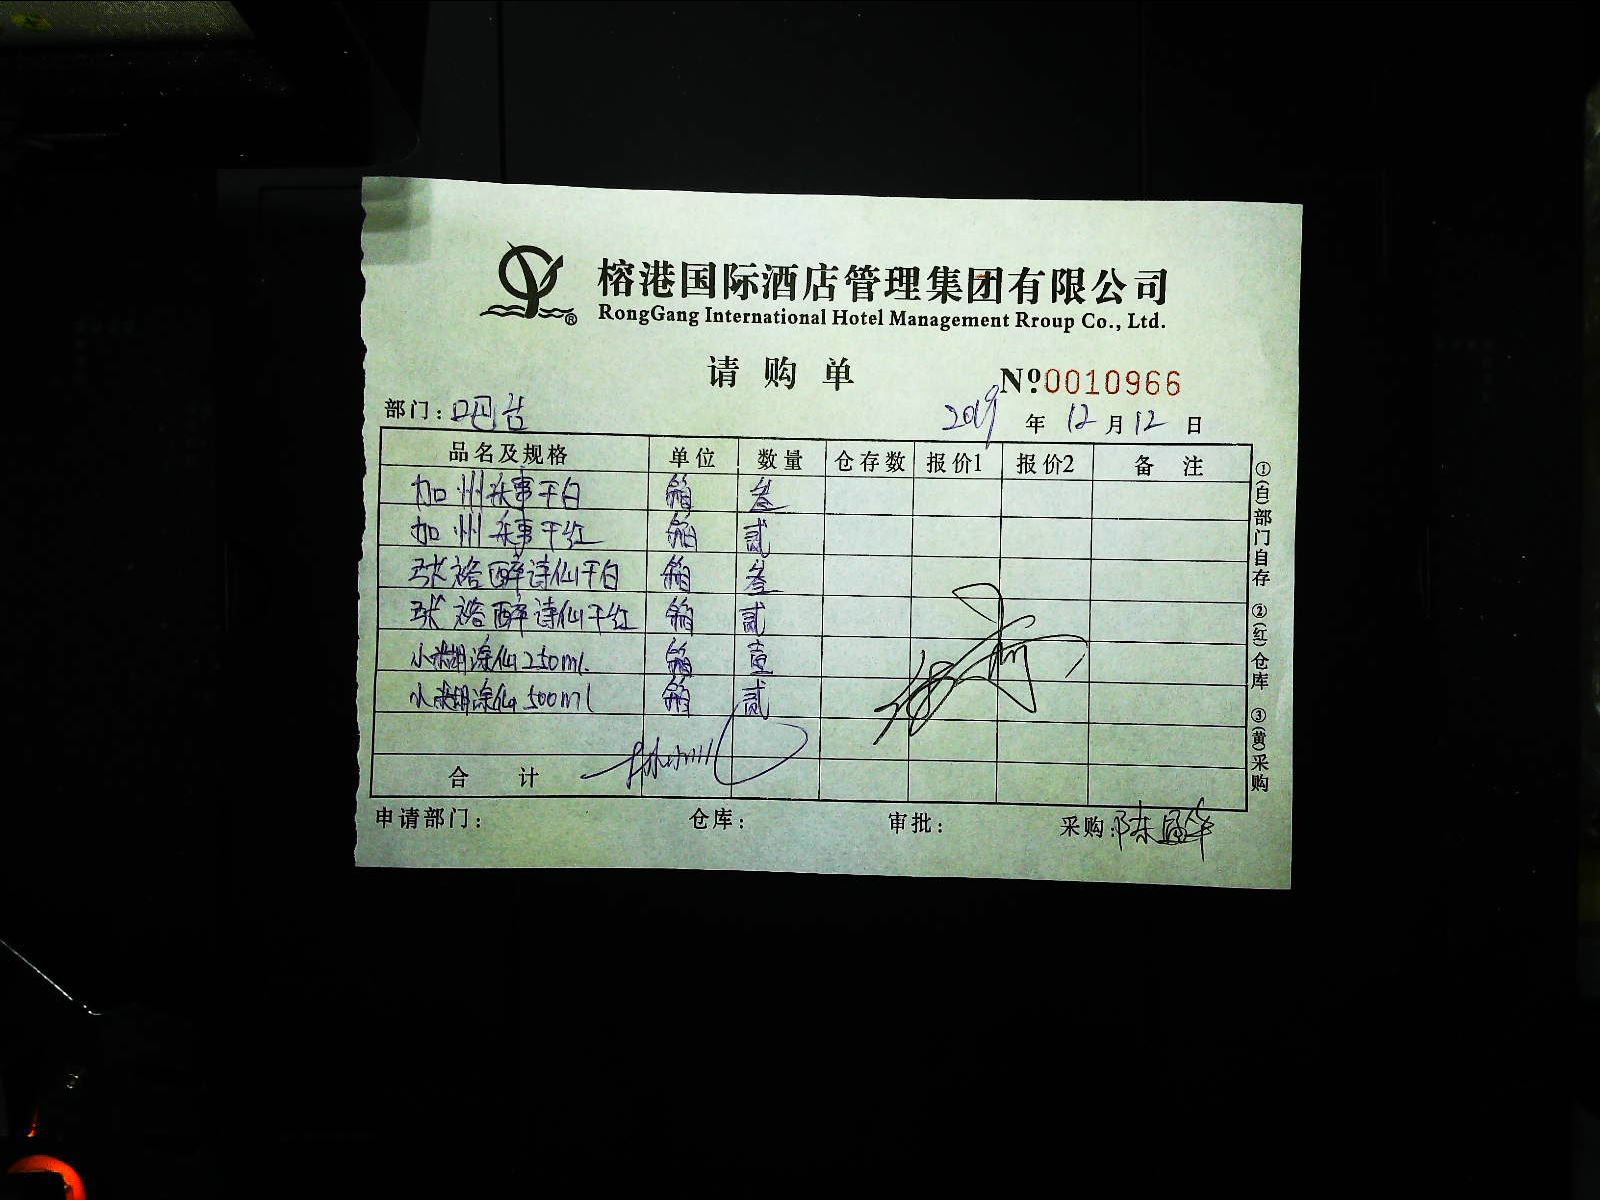 榕港国际酒店管理集团有限公司
RongGang International Hotel Management Rroup Co., Ltd.
请购单
№0010966
部门：吧台 2019年12月12日
品名及规格 单位 数量 仓存数 报价1 报价2 备注
加州乐事干白 箱 叁
加州乐事干红 箱 贰
张裕醉诗仙干白 箱 叁
张裕醉诗仙干红 箱 贰
小糊涂仙250ml 箱 壹
小糊涂仙500ml 箱 贰
合计
申请部门： 仓库： 审批： 采购：陈
①(白)部门自存 ②(红)仓库 ③(黄)采购